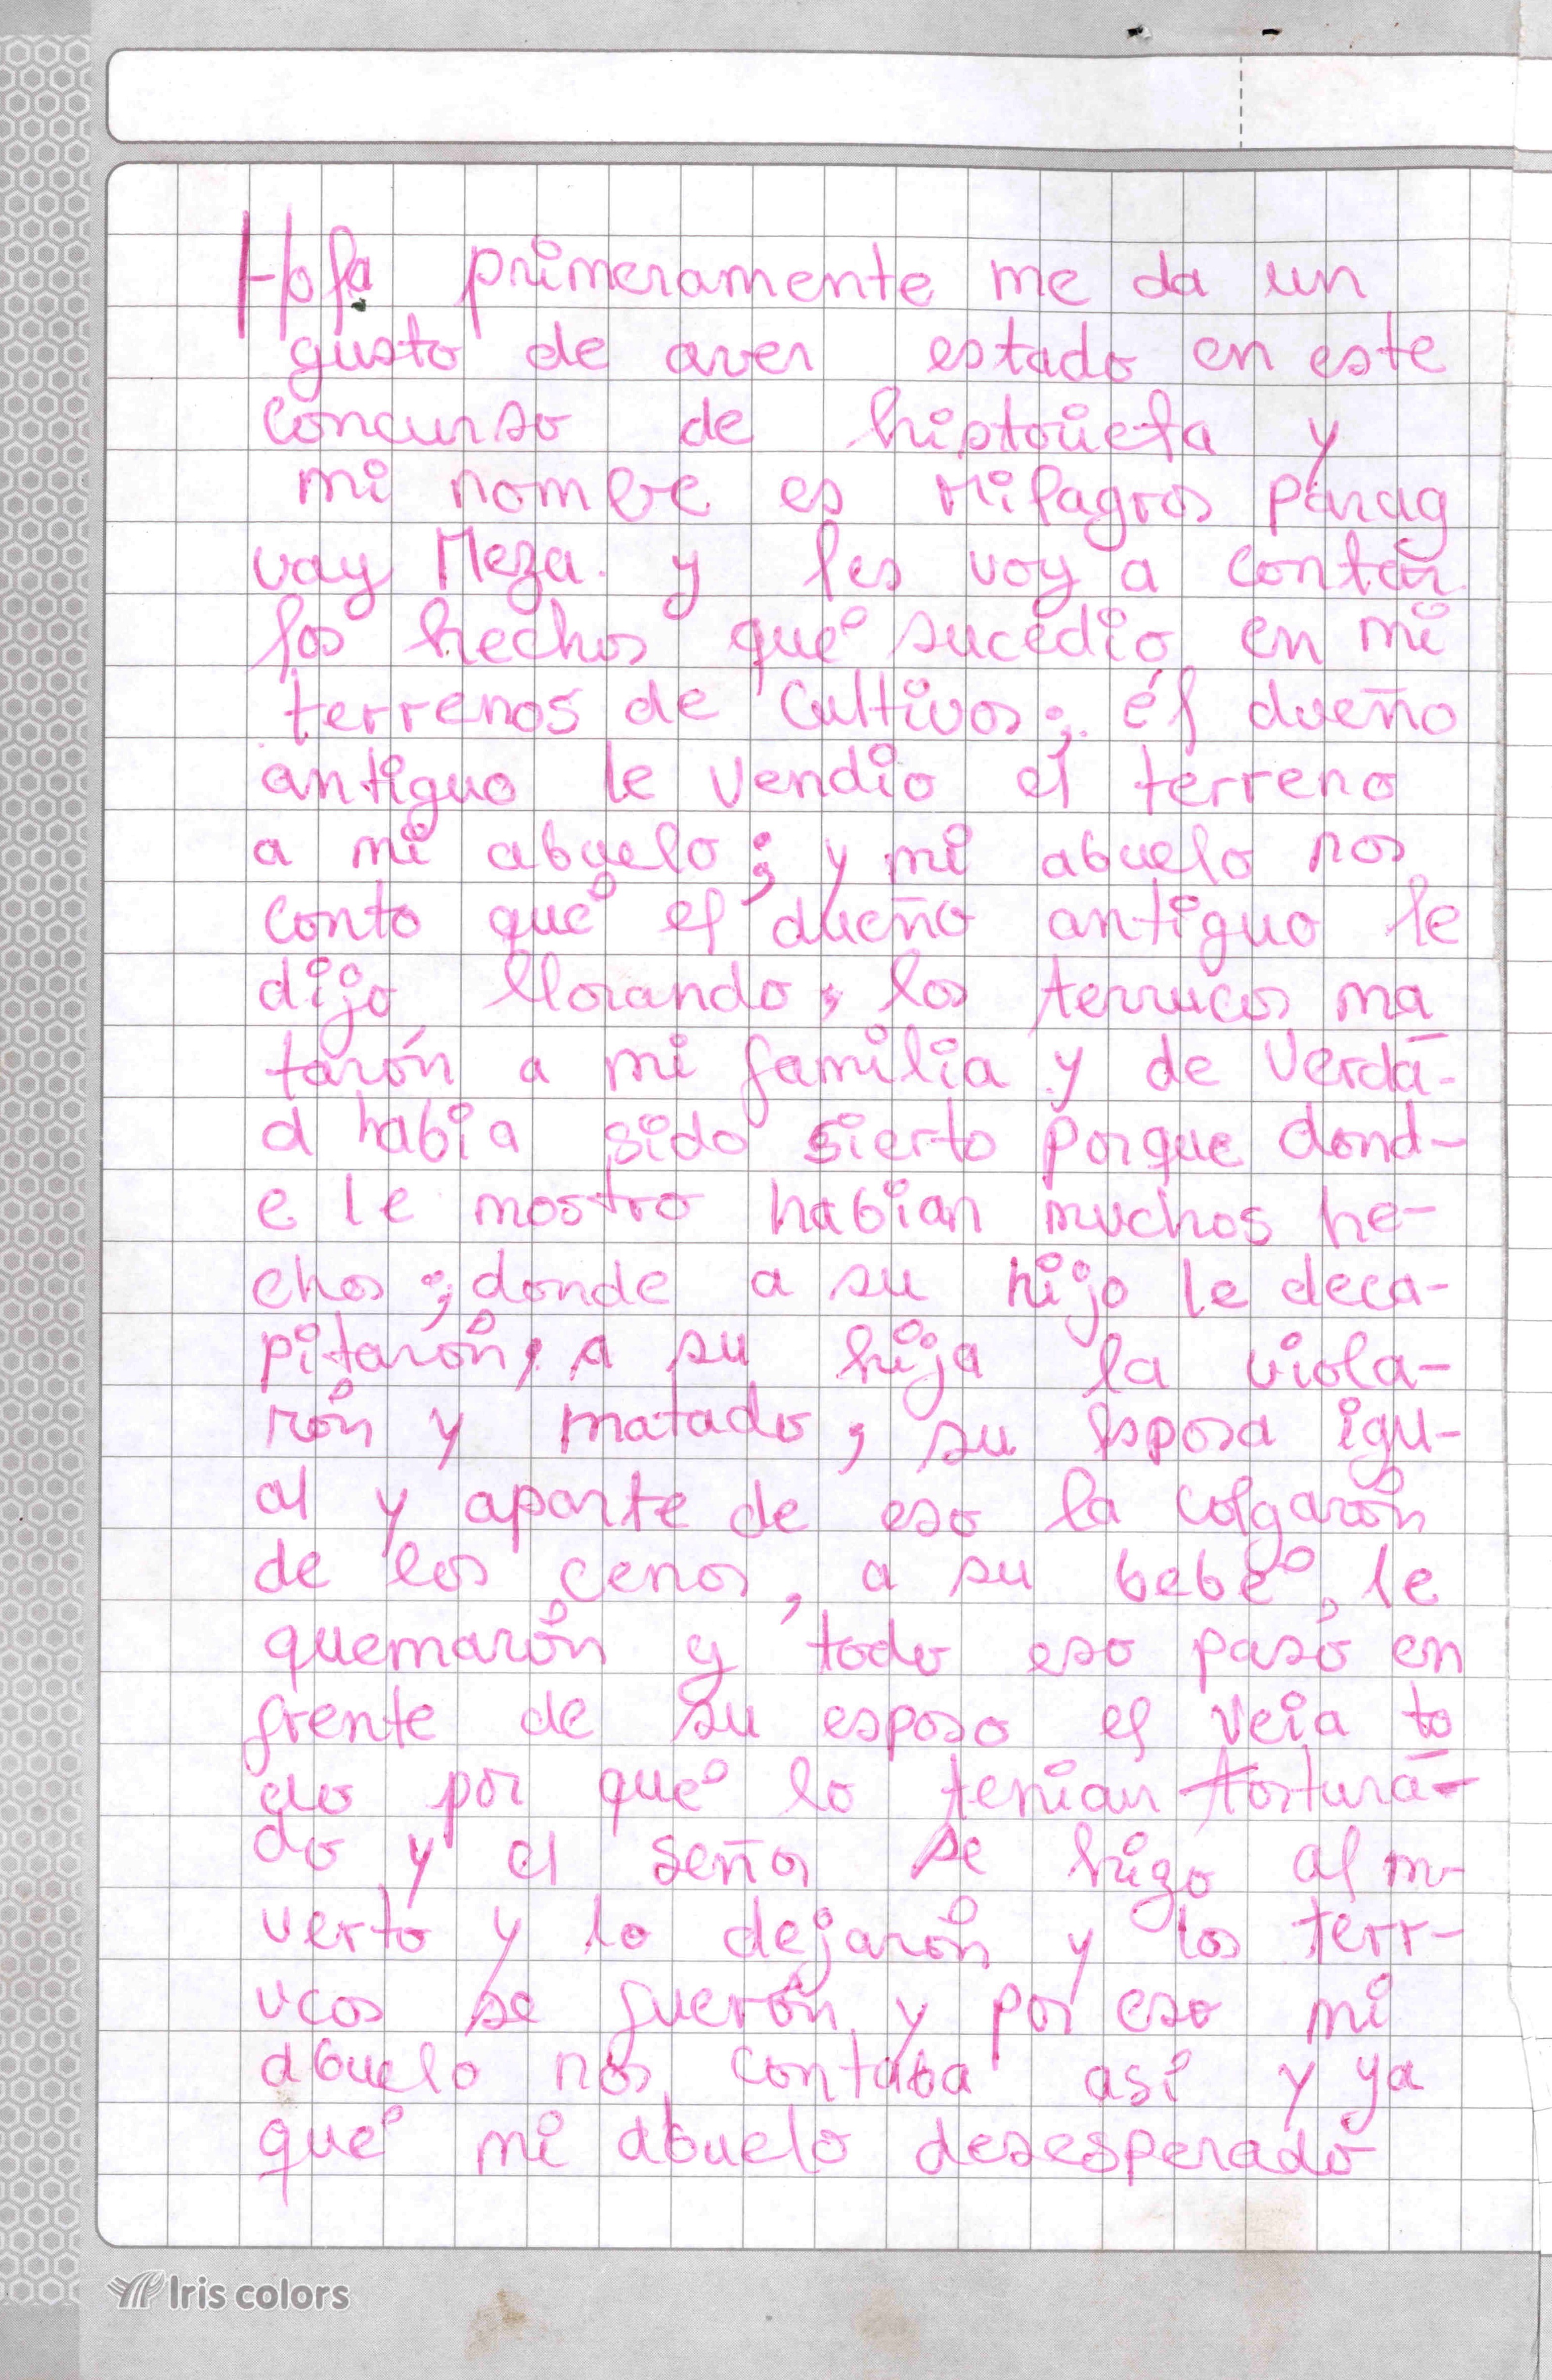 Hola primeramente me da un
gusto de aver estado en este
concurso de historieta y
mi nombre es Milagros parag
uay Meza. y les voy a contar
los hechos qué sucedio en mi
terrenos de cultivos; él dueño
antiguo le vendio el terreno
a mi abuelo; y mi abuelo nos
conto qué el dueño antiguo le
dijo llorando, los terrucos ma
tarón a mi familia y de verda-
d habia sido sierto porque dond-
e le mostro habian muchos he-
chos; donde a su hijo le deca-
pitarón, a su hija la viola-
rón y matado, su esposa igu-
al y aparte de eso la colgarón
de los cenos, a su bebé, le
quemarón y todo eso pasó en
frente de su esposo el veia to
do por qué lo tenian tortura-
do y el señor se hizo al m-
uerto y lo dejarón y los terr-
ucos se fuerón y por eso mi
abuelo nos contaba asi y ya
qué mi abuelo desesperado
Iris colors